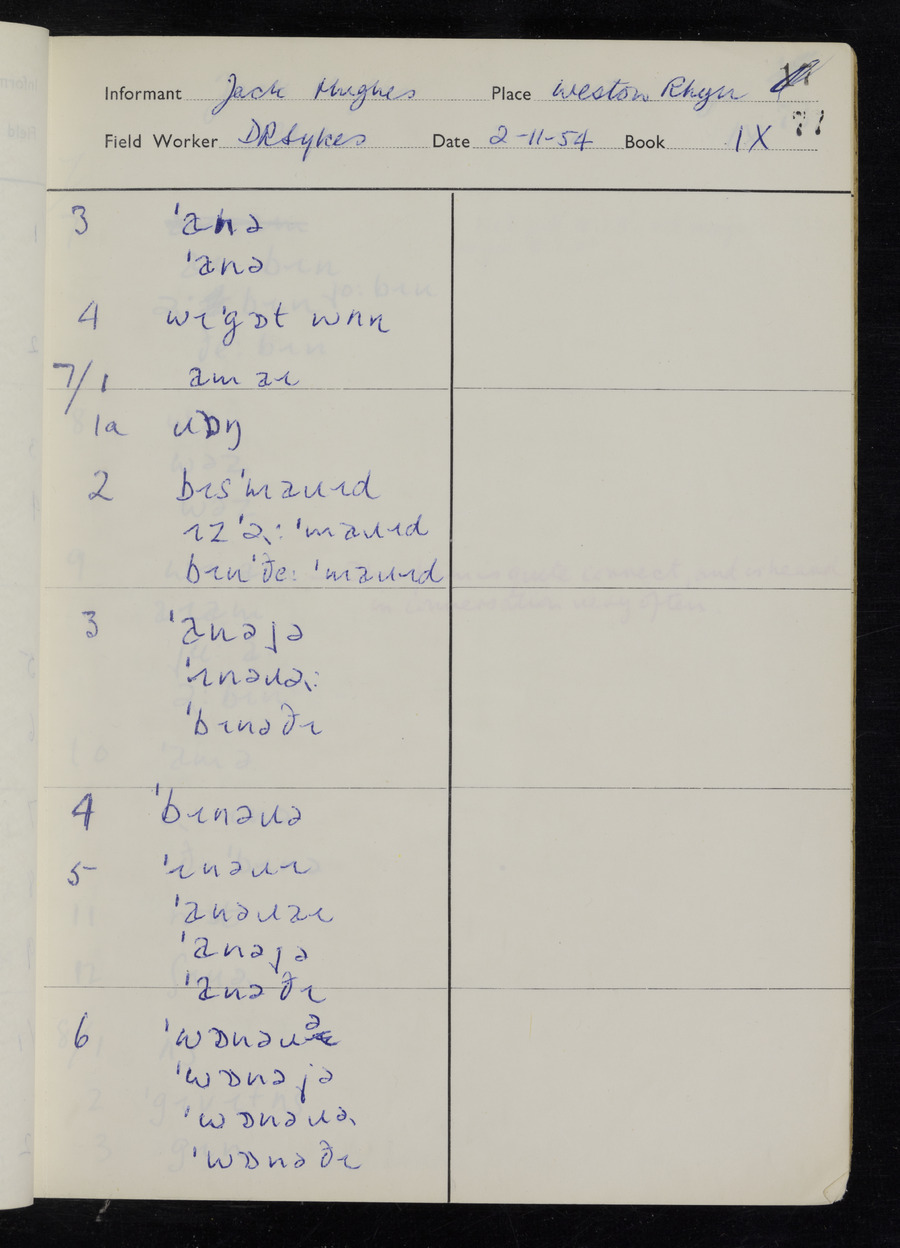 Informant Jack Hughes Place Weston Rhyn
Field Worker DRSykes Date 2-11-54 Book IX 71
3 ˈanə
ˈanə
4 wɪˈgɒt wʌn
7/1 am aɪ
1a ɹɒŋ
2 bɪsˈmaɹɪd
ɪzˈə: ˈmaɹɪd
bɪnˈðe: ˈmaɹɪd
3 ˈanəjə
ˈɪnəɹə:
ˈbɪnəðɪ
4 ˈbɪnəɹə
5 ˈɪnəɹɪ
ˈanəɹaɪ
ˈanəjə
ˈanəðɪ
6 ˈwɒnəɹə
ˈwɒnəjə
ˈwɒnəɹə
ˈwɒnəðɪ